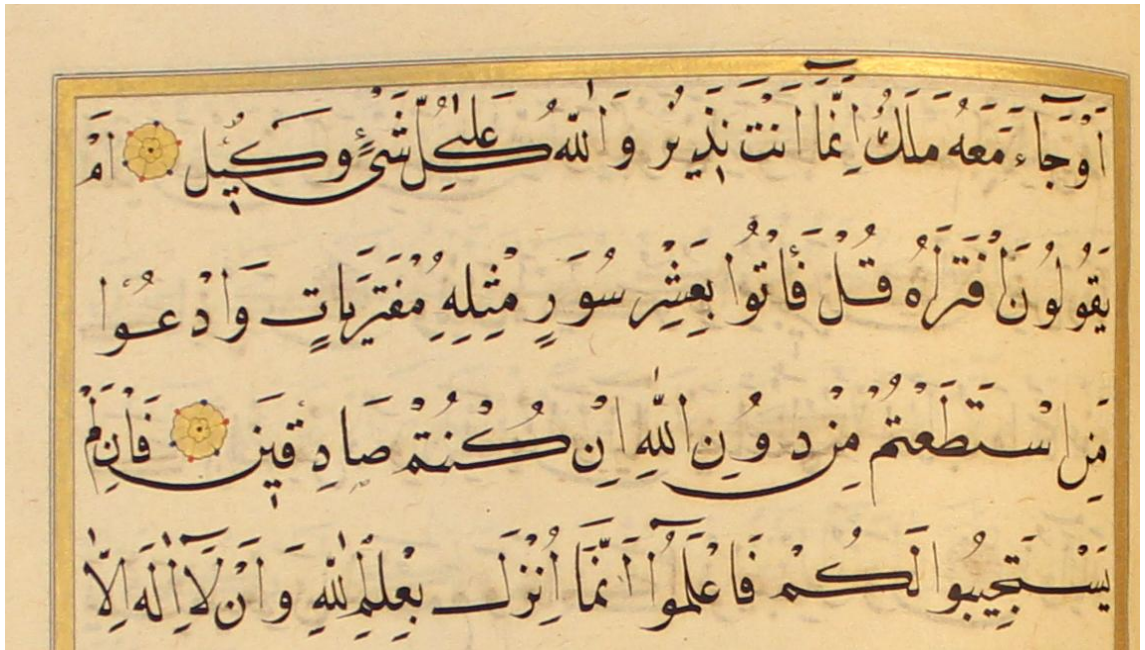 اَوْ جَآءَ مَعَهُ مَلَكٌ اِنَّمَٓا اَنْتَ نَذِيرٌ وَاللّٰهُ عَلٰى كُلِّ شَىْءٍ وَكِيلٌ اَمْ
يَقُولُونَ افْتَرَاهُ قُلْ فَأْتُوا بِعَشْرِ سُوَرٍ مِثْلِهِ مُفْتَرَيَاتٍ وَادْعُوا
مَنِ اسْتَطَعْتُمْ مِنْ دُونِ اللّٰهِ اِنْ كُنْتُمْ صَادِقِينَ فَاِنْ لَمْ
يَسْتَجِيبُوا لَكُمْ فَاعْلَمُٓوا اَنَّمَٓا اُنْزِلَ بِعِلْمِ اللّٰهِ وَاَنْ لَٓا اِلٰهَ اِلَّا